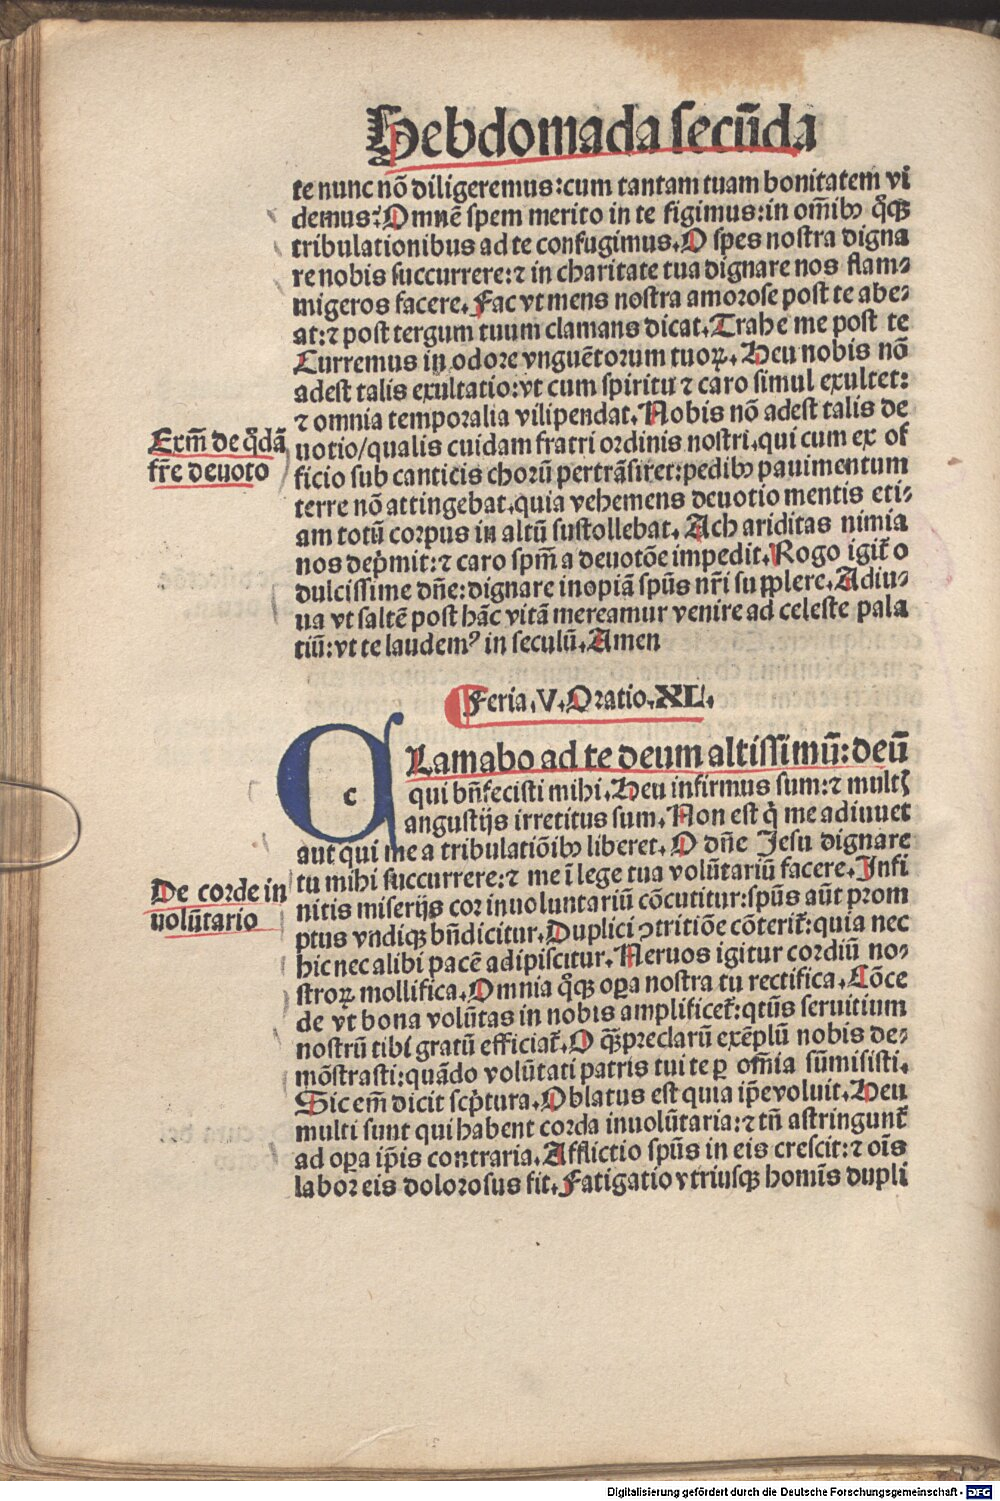 Hebdomada secūda
te nunc nō diligeremus: cum tantam tuam bonitatem vi
demus? Omnē spem merito in te figimus: in om̄ibꝰ q̄sꝙ
tribulationibus ad te confugimus. O spes nostra digna
re nobis succurrere: ⁊ in charitate tua dignare nos flam⸗
migeros facere. Fac vt mens nostra amorose post te abe⸗
at: ⁊ post tergum tuum clamans dicat. Trahe me post te
Curremus in odore vnguētorum tuoꝝ. Heu nobis nō
adest talis exultatio: vt cum spiritu ⁊ caro simul exultet:
⁊ omnia temporalia vilipendat. Nobis nō adest talis de
Exm̄ de q̄dā
fr̄e deuoto
uotio/qualis cuidam fratri ordinis nostri. qui cum ex of
ficio sub canticis chorū pertrāsiret: pedibꝰ pauimentum
terre nō attingebat. quia vehemens deuotio mentis eti⸗
am totū corpus in altū sustollebat. Ach ariditas nimia
nos dep̄mit: ⁊ caro spm̄ a deuotōe impedit. Rogo igit̄ o
dulcissime dn̄e: dignare inopiā spūs nr̄i supplere. Adiu⸗
ua vt saltē post hāc vitā mereamur venire ad celeste pala
tiū: vt te laudemꝰ in seculū. Amen
Feria. V. Oratio. XL.
c
Lamabo ad te deum altissimū: deū
qui bn̄fecisti mihi. Heu infirmus sum: ⁊ mult̄
angustijs irretitus sum. Non est q̄ me adiuuet
aut qui me a tribulatiōibꝰ liberet. O dn̄e Jesu dignare
tu mihi succurrere: ⁊ me ī lege tua volūtariū facere. Infi
De corde in
uolūtario
nitis miserijs cor inuoluntariū cōcutitur: spūs aūt prom
ptus vndiqꝫ bn̄dicitur. Duplici ꝯtritiōe cōterit̄: quia nec
hic nec alibi pacē adipiscitur. Neruos igitur cordiū no⸗
stroꝝ mollifica. Omnia q̄sꝙ oꝑa nostra tu rectifica. Cōce
de vt bona volūtas in nobis amplificet̄: qtūs seruitium
nostrū tibi gratū efficiat̄. O qꝫ preclarū exēplū nobis de⸗
mōstrasti: quādo volūtati patris tui te ꝑ om̄ia sūmisisti.
Sic em̄ dicit scp̄tura. Oblatus est quia ip̄e voluit. Heu
multi sunt qui habent corda inuolūtaria: ⁊ tn̄ astringunt̄
ad oꝑa ip̄is contraria. Afflictio spūs in eis crescit: ⁊ oīs
labor eis dolorosus fit. Fatigatio vtriusqꝫ homīs dupli
Digitalisierung gefördert durch die Deutsche Forschungsgemeinschaft - DFG